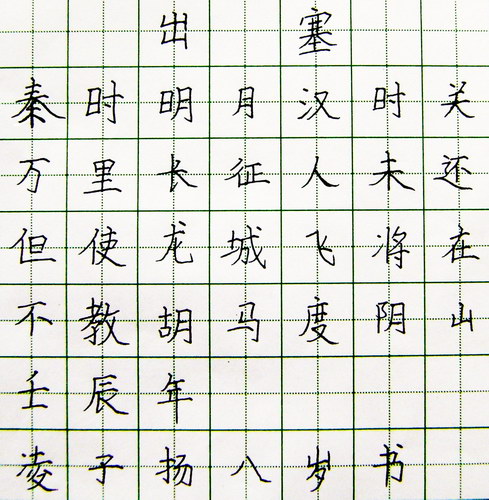 出塞
秦时明月汉时关
万里长征人未还
但使龙城飞将在
不教胡马度阴山
壬辰年
凌子扬八岁书